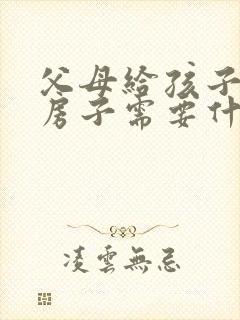 父母给孩子
房子需要什
凌雲無忌